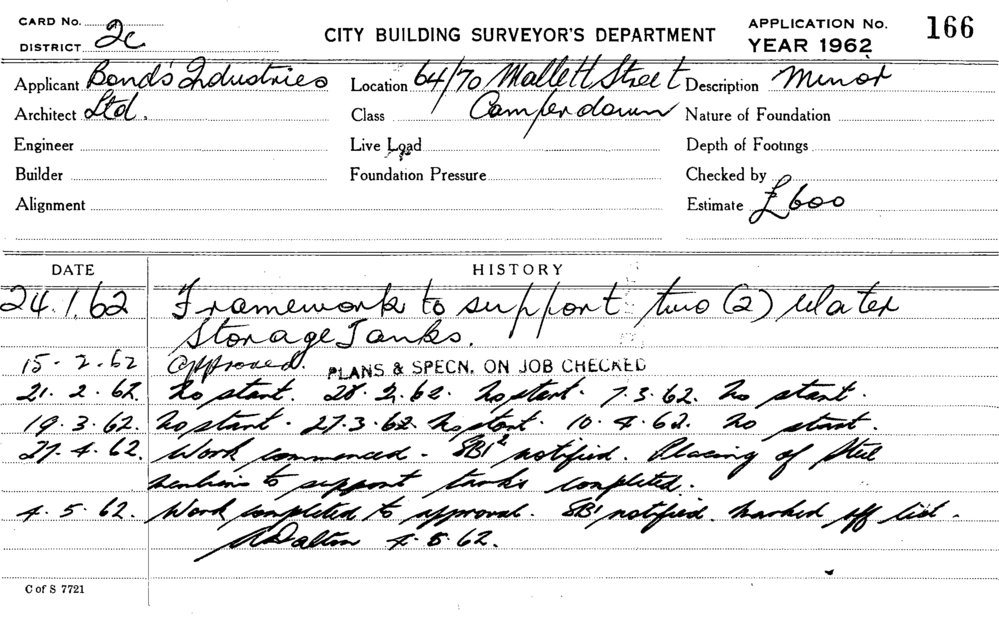 CARD No.
DISTRICT 2c
CITY BUILDING SURVEYOR'S DEPARTMENT
APPLICATION No. 166
YEAR 1962
Applicant Bond's Industries Location 64/70 Mallett Street Description Minor
Architect Ltd. Class Camperdown Nature of Foundation
Engineer Live Load Depth of Footings
Builder Foundation Pressure Checked by
Alignment Estimate £600
DATE HISTORY
24.1.62 Framework to support two (2) Water
Storage Tanks.
15.2.62 Approved. PLANS & SPECN. ON JOB CHECKED
21.2.62. No start. 28.2.62. No start. 7.3.62. No start.
19.3.62. No start. 27.3.62. No start. 10.4.62. No start.
27.4.62. Work commenced. SBI² notified. Placing of steel
to support tanks completed.
4.5.62. Work completed to approval. SBI notified. Marked off list.
Dalton 4.5.62.
C of S 7721